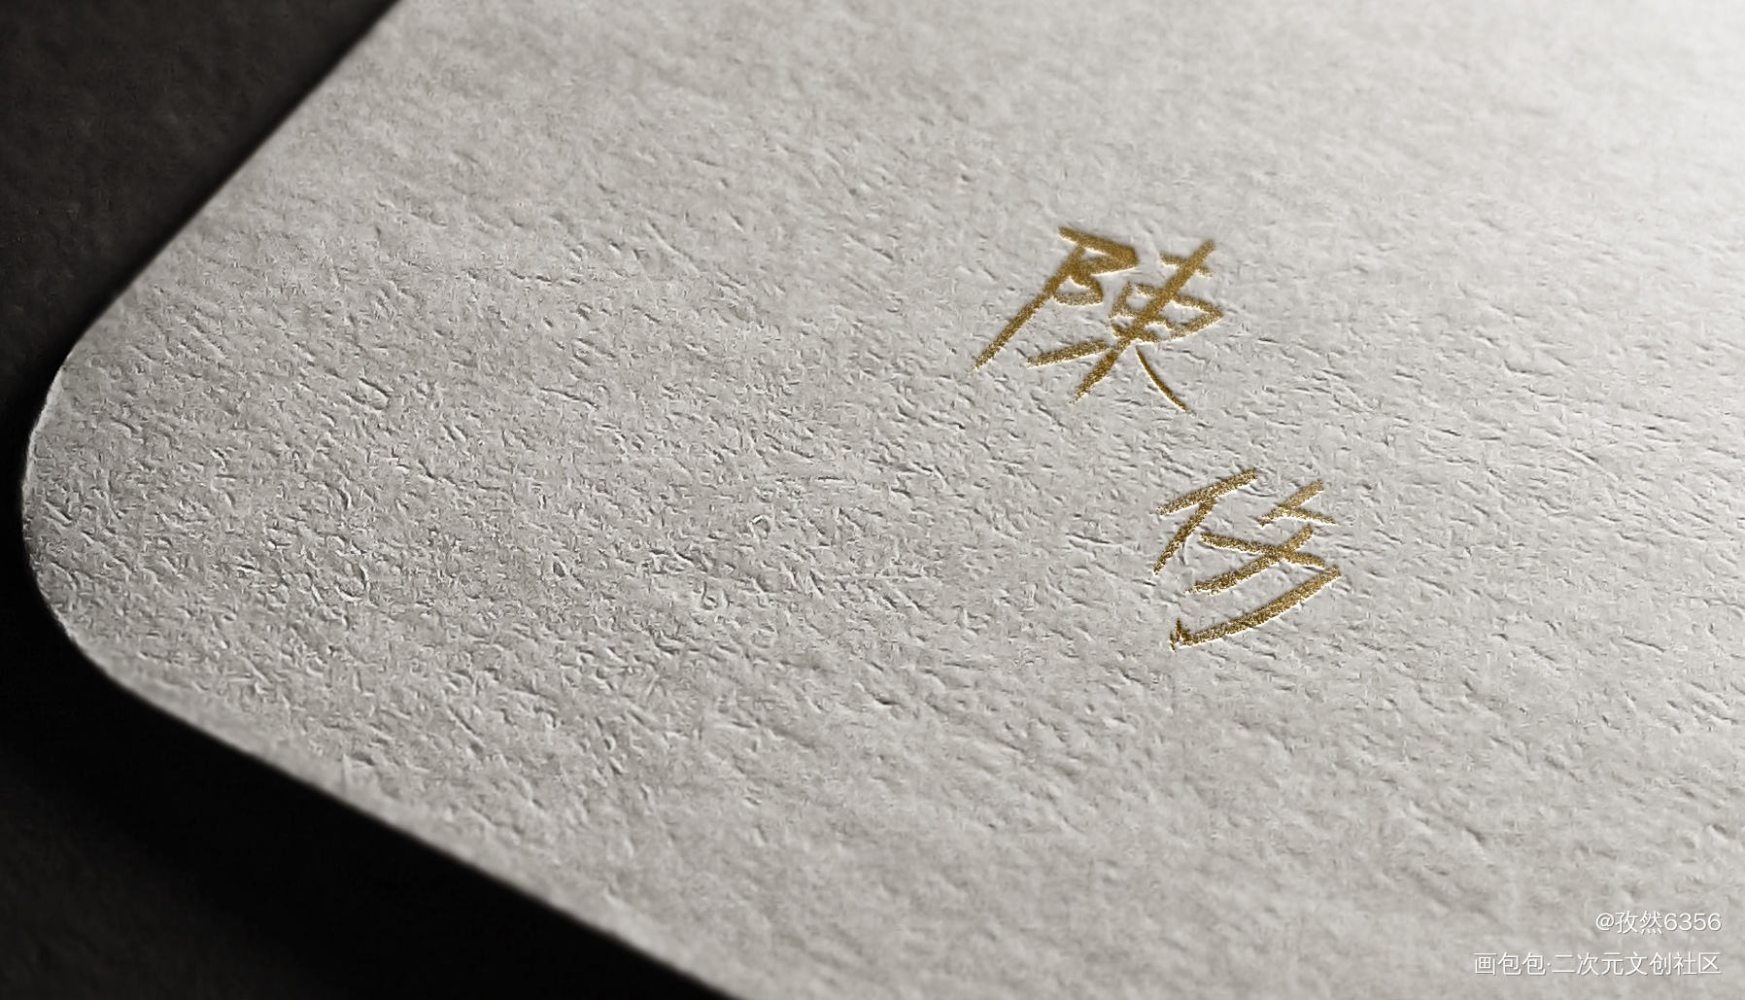 陳
@孜然6356
画包包·二次元文创社区